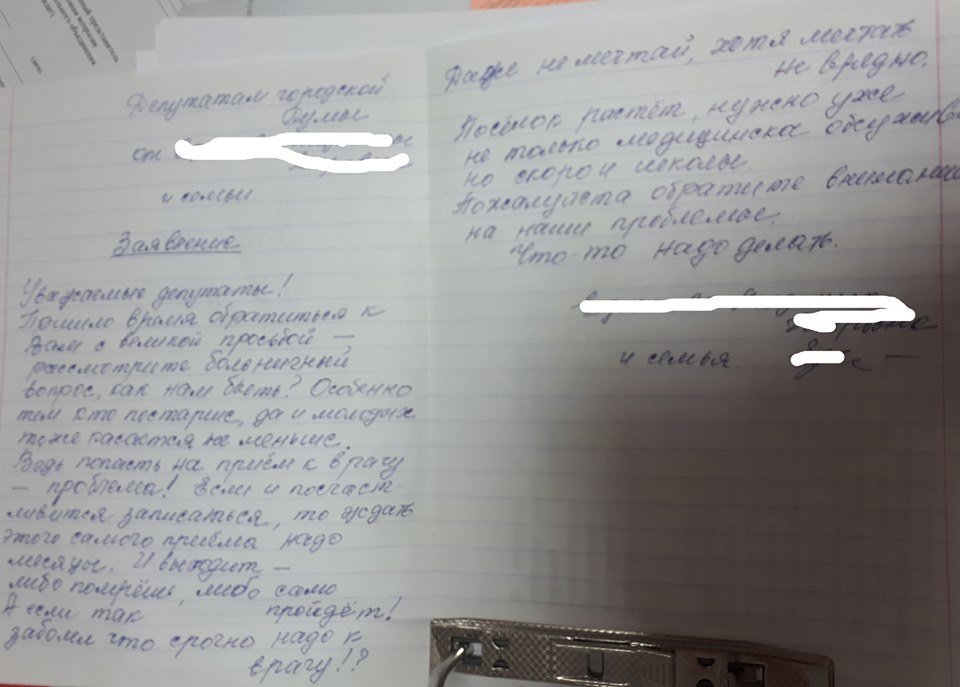 Депутатам городской
Думы
от
и семьи
Заявление
Уважаемые депутаты!
Пришло время обратиться к
Вам с великой просьбой —
рассмотрите больничный
вопрос, как нам быть? Особенно
тем кто постарше, да и молодых
тоже касается не меньше.
Ведь попасть на приём к врачу
— проблема! Если и посчаст
ливится записаться, то ждать
этого самого приёма надо
месяцы. И выходит —
либо помрёшь, либо само
пройдёт!
А если так
заболел что срочно надо к
врачу!?
Даже не мечтай, хотя мечтать
не вредно.
Посёлок растёт, нужно уже
не только медицинска обслужив
но скоро и школы.
Пожалуйста обратите внимани
на наши проблемы.
Что-то надо делать.
и семья